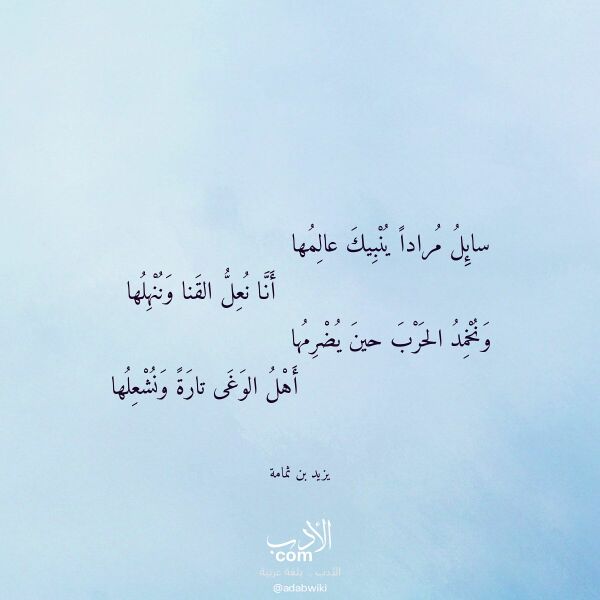 سايِلُ مُراداً يُنْبِيكَ عالِمُها
أَنَّا نُعِلُّ القَنا وَنُنْهِلُها
وَنُخْمِدُ الحَرْبَ حينَ يُضْرِمُها
أَهْلُ الوَغَى تارَةً وَنُشْعِلُها
يزيد بن ثمامة
الأدب
com
الأدب .. بلغة عربية
@adabwiki